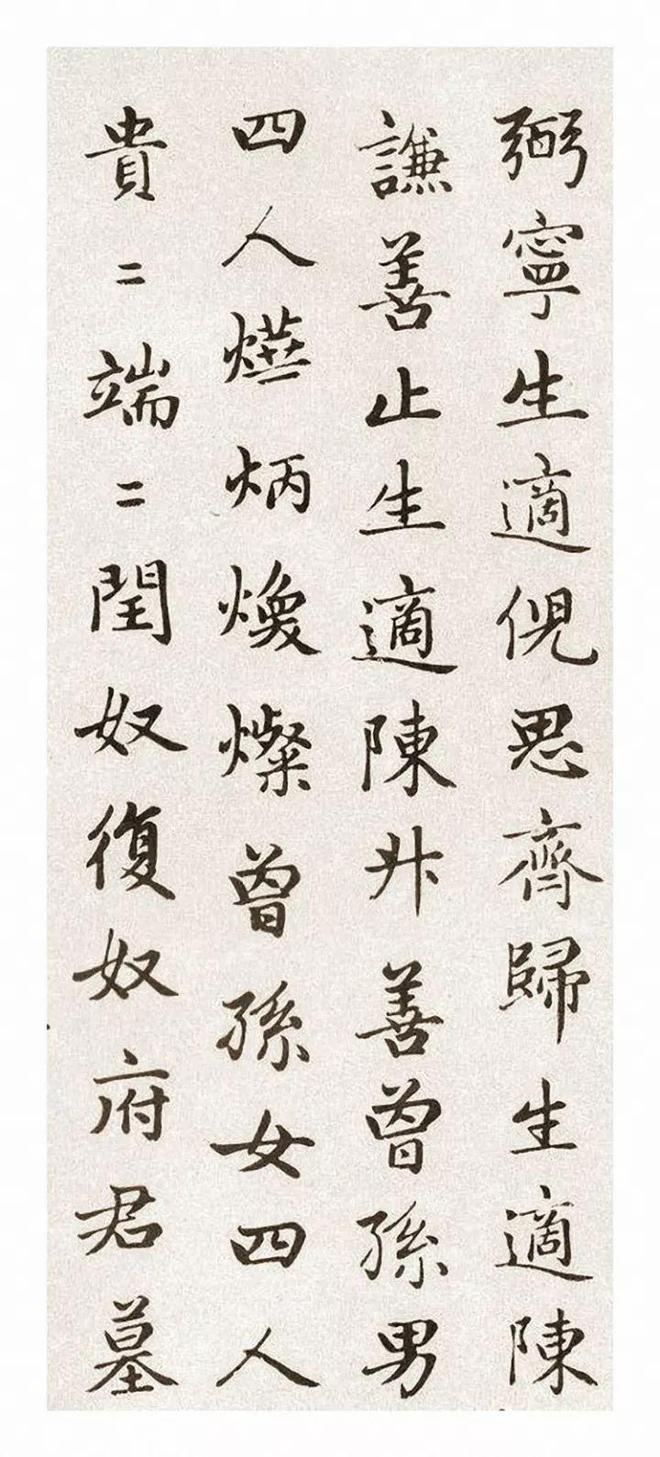 弼寧生適倪思齊歸生適陳
謙善止生適陳昇善曾孫男
四人燁炳煥燦曾孫女四人
貴二端二閏奴復奴府君墓